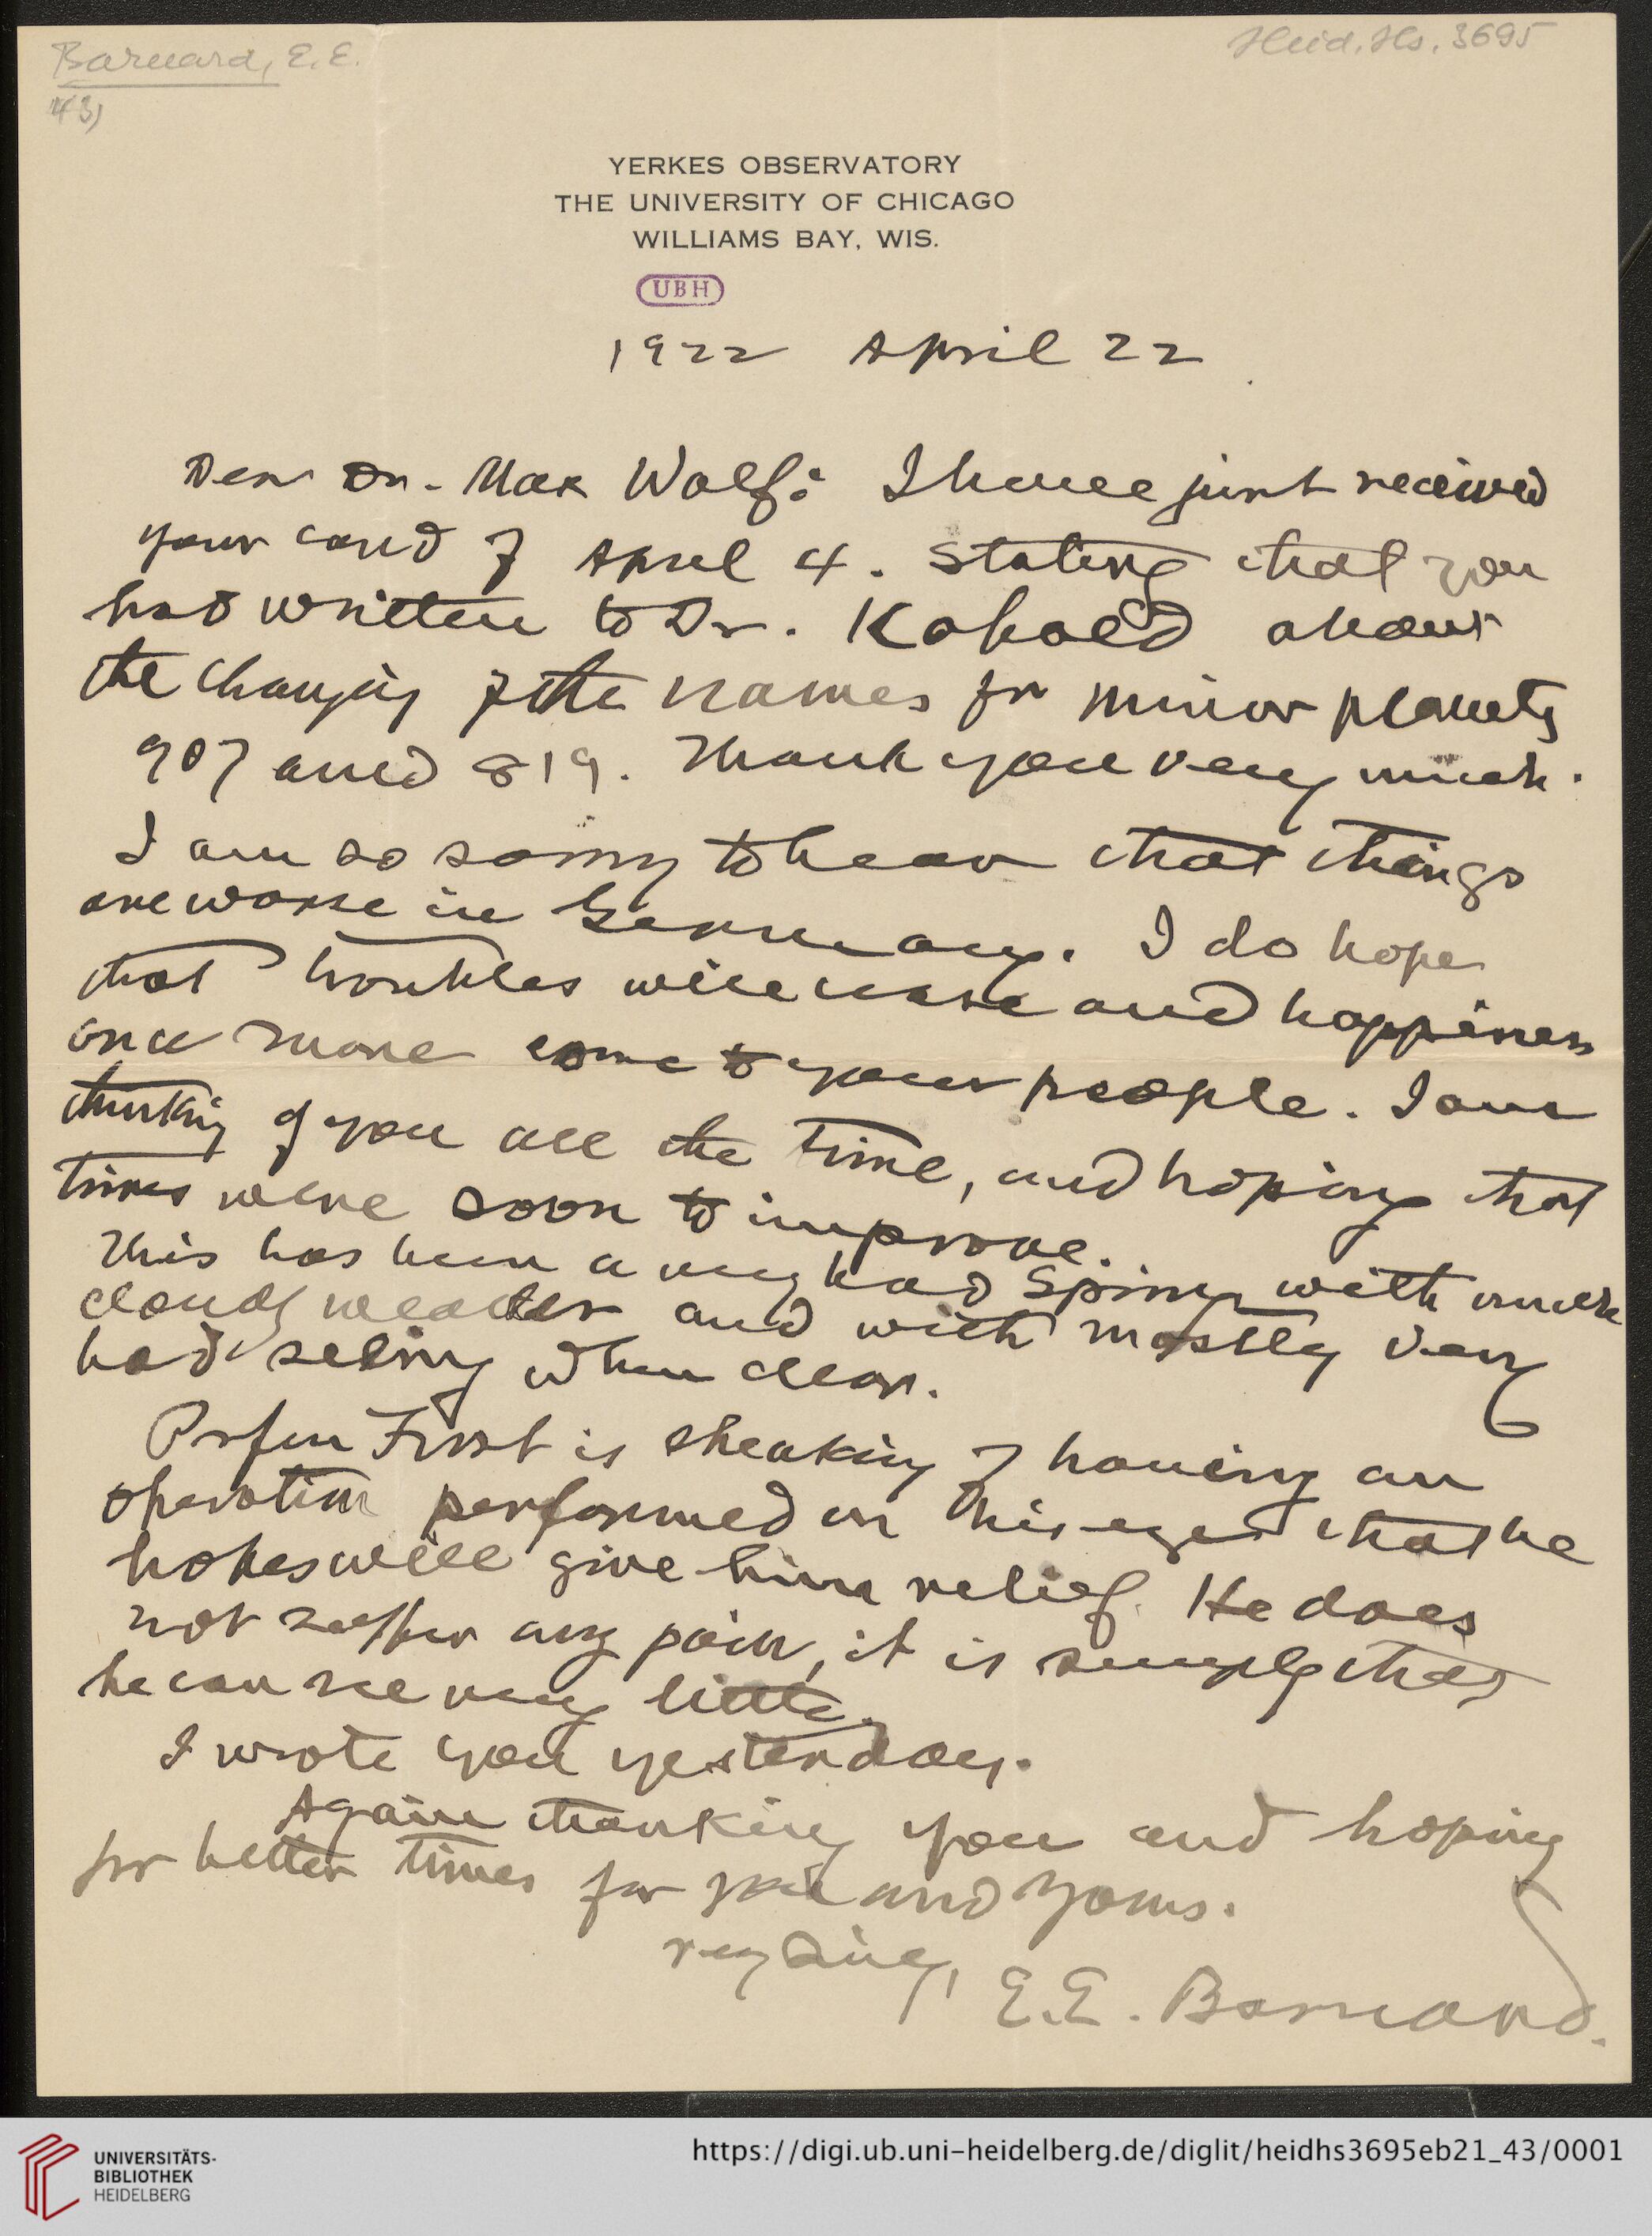 Barnard, E. E.
43)
Heid. Hs. 3695
YERKES OBSERVATORY
THE UNIVERSITY OF CHICAGO
WILLIAMS BAY, WIS.
UBH
1922 April 22
Dear Dr. Max Wolf: I have just received
your card of April 4. stating that you
had written to Dr. Kobold about
the changing of the names for minor planets
907 and 819. Thank you very much.
I am so sorry to hear that things
are worse in Germany. I do hope
that troubles will cease and happiness
once more come to your people. I am
thinking of you all the time, and hoping that
times were soon to improve.
This has been a very bad Spring with much
cloudy weather and with mostly very
bad seeing when clear.
Profesr Frost is speaking of having an
operation performed on his eyes that he
hopes will give him relief. He does
not suffer any pain, it is simply that
he can see very little.
I wrote you yesterday.
Again thanking you and hoping
for better times for you and yours.
very Sincy, E. E. Barnard.
UNIVERSITÄTS-
BIBLIOTHEK
HEIDELBERG
https://digi.ub.uni-heidelberg.de/diglit/heidhs3695eb21_43/0001